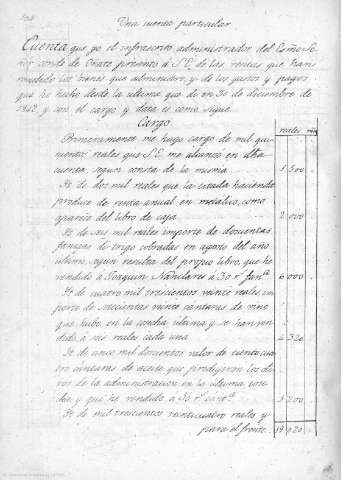 Una cuenta particular
Cuenta que yo el infrascrito administrador del Exmo Se-
ñor conde de Oñate presento á S.E. de las rentas que han
producido los bienes que administro, y de los gastos y pagos
que he hecho desde la última que dí en 30 de diciembre de
1842 y con el cargo y data es como sigue.
Cargo. reales mrs
Primeramente me hago cargo de mil qui-
nientos reales que S.E. me alcanzó en dha
cuenta, segun consta de la misma 1 500
It. de dos mil reales que la citada hacienda
produce de renta anual en metalico, como
aparece del libro de caja 2 000
It. de seis mil reales importe de doscientas
fanegas de trigo cobradas en agosto del año
último, segun resulta del propio libro, que he
vendido á Joaquin Nanclares á 30 rs fanga 6 000
It. de cuatro mil trescientos veinte reales im-
porte de setecientas veinte cántaras de vino
que hubo en la cosecha última y se han ven-
dido á seis reales cada una 4 320
It. de cinco mil doscientos valor de ciento cua
tro cántaras de aceite que produjeron los oli-
vos de la administracion en la última cose-
cha, y que he vendido á 50 rs 5 200
It. de mil trescientos veinticuatro reales y
pasa al frente 19 020